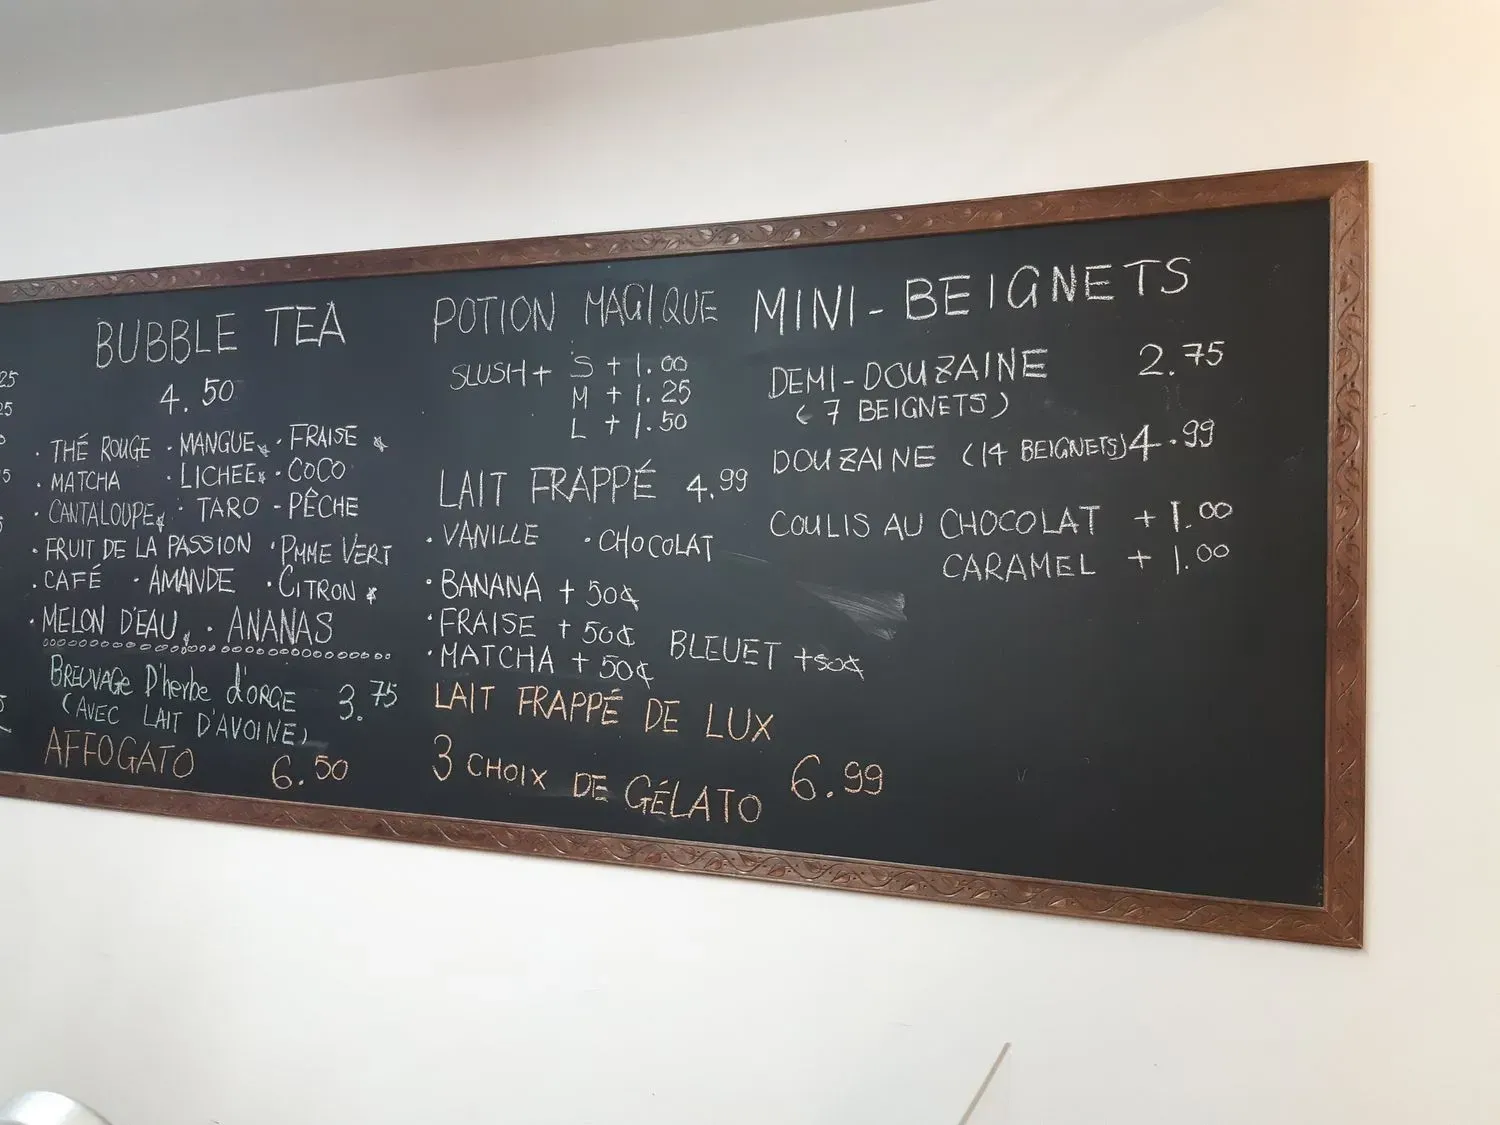 25
25
5
BUBBLE TEA
4.50
· THÉ ROUGE · MANGUE* · FRAISE *
· MATCHA · LICHEE* · COCO
· CANTALOUPE* · TARO - PÊCHE
· FRUIT DE LA PASSION · PMME VERT
· CAFÉ · AMANDE · CITRON *
· MELON D'EAU * · ANANAS
BREUVAGE D'herbe d'ORGE 3.75
(AVEC LAIT D'AVOINE)
AFFOGATO 6.50
POTION MAGIQUE
SLUSH + S + 1.00
M + 1.25
L + 1.50
LAIT FRAPPÉ 4.99
· VANILLE · CHOCOLAT
· BANANA + 50¢
· FRAISE + 50¢ BLEUET +50¢
· MATCHA + 50¢
LAIT FRAPPÉ DE LUX
3 CHOIX DE GÉLATO 6.99
MINI-BEIGNETS
DEMI-DOUZAINE 2.75
(7 BEIGNETS)
DOUZAINE (14 BEIGNETS) 4.99
COULIS AU CHOCOLAT + 1.00
CARAMEL + 1.00